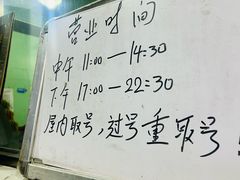 营业时间
中午 11:00—14:30
下午 17:00—22:30
屋内取号，过号重取号